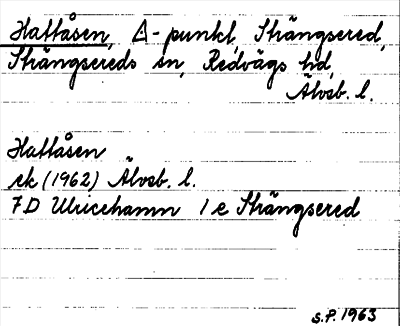 Hattåsen, Δ-punkt, Strängsered,
Strängsereds sn, Redvägs hd,
Älvsb. l.
Hattåsen
ek (1962) Älvsb. l.
7D Ulricehamn 1 e Strängsered
S.P. 1963